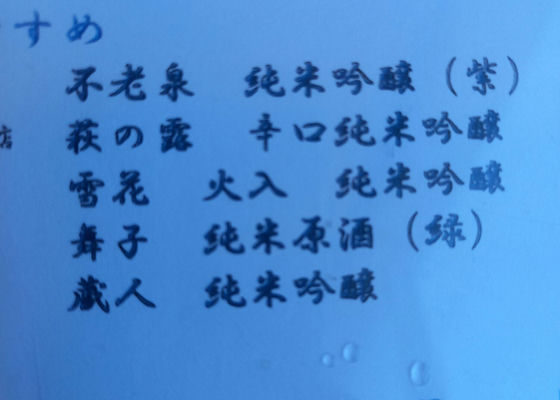 すめ
不老泉 純米吟醸（紫）
萩の露 辛口純米吟醸
店
雪花 火入 純米吟醸
舞子 純米原酒（緑）
蔵人 純米吟醸